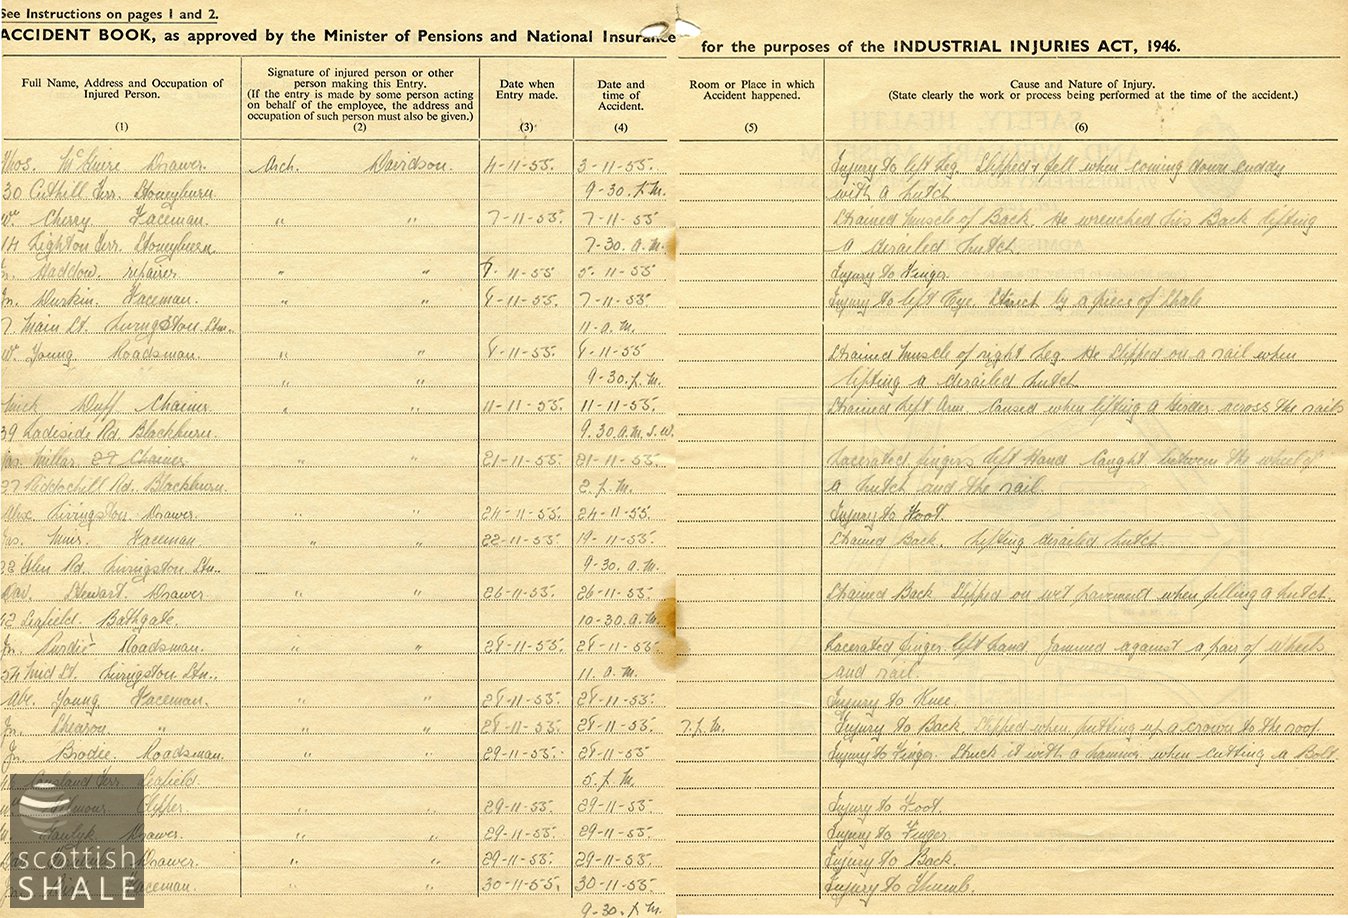 See Instructions on pages 1 and 2.
ACCIDENT BOOK, as approved by the Minister of Pensions and National Insurance for the purposes of the INDUSTRIAL INJURIES ACT, 1946.
Full Name, Address and Occupation of Injured Person. (1)
Signature of injured person or other person making this Entry. (If the entry is made by some person acting on behalf of the employee, the address and occupation of such person must also be given.) (2)
Date when Entry made. (3)
Date and time of Accident. (4)
Room or Place in which Accident happened. (5)
Cause and Nature of Injury. (State clearly the work or process being performed at the time of the accident.) (6)
Thos. McGuire Drawer. Arch. Davidson. 4-11-55. 3-11-55. Injury to left Leg. Slipped & fell when coming down cuddy
30 Cuthill Terr. Stoneyburn. 9-30. p.m. with a hutch
Wm Cherry Faceman. " " 7-11-55. 7-11-55 Strained muscle of Back. He wrenched his Back lifting
14 Lighton Terr. Stoneyburn. 7-30. a.m. a derailed hutch.
Haddow. repairer " " 7-11-55 5-11-55 Injury to Finger.
Jn. Durkin. Faceman. " " 8-11-55. 7-11-55 Injury to left Eye. Struck by a piece of shale
7 Main St. Livingston Stn.. 11-a.m.
Wm Young Roadsman. " " 8-11-55. 8-11-55 Strained muscle of right leg. He slipped on a rail when
" " 9-30.p.m. lifting a derailed hutch
Duff Chainer " " 11-11-55. 11-11-55. Strained Left Arm. Caused when lifting a girder across the rails
39 Ladeside Rd. Blackburn. 9.30.a.m.
Jas. Millar 29 Chainer " " 21-11-55. 21-11-55. Lacerated fingers left Hand. Caught between the wheel of
27 Riddochill Rd. Blackburn. 2.p.m. a hutch and the rail.
Alex. Livingston Drawer. " " 24-11-55 24-11-55 Injury to Foot.
Jas. Muir. Faceman " " 22-11-55 19-11-55. Strained Back. Lifting derailed hutch
22 Glen Rd. Livingston Stn.. 9-30. a.m.
Dav. Stewart. Drawer " " 26-11-55. 26-11-55. Strained Back. Slipped on wet pavement when filling a hutch
12 Seafield. Bathgate. 10-30.a.m.
Jn. Purdie Roadsman. " " 28-11-55. 28-11-55. Lacerated finger left hand. Jammed against a pair of wheels
54 Mid St. Livingston Stn.. 11. a.m. and rail.
Abe. Young Faceman. " " 28-11-55. 28-11-55. Injury to Knee.
Jn. Shearon " " " 28-11-55. 28-11-55. 7.p.m. Injury to Back. Slipped when putting up a crown to the roof.
Jn. Brodie. Roadsman. " " 29-11-55. 28-11-55 Injury to Finger. Struck it with a hammer when cutting a Bolt
Terr. Seafield. 5. p.m.
Gilmour Clipper " " 29-11-55. 29-11-55. Injury to Foot.
Drawer. " " 29-11-55. 29-11-55. Injury to Finger
Drawer. " " 29-11-55. 29-11-55. Injury to Back.
Faceman. " " 30-11-55. 30-11-55. Injury to Thumb.
9-30. p.m.
scottish
SHALE